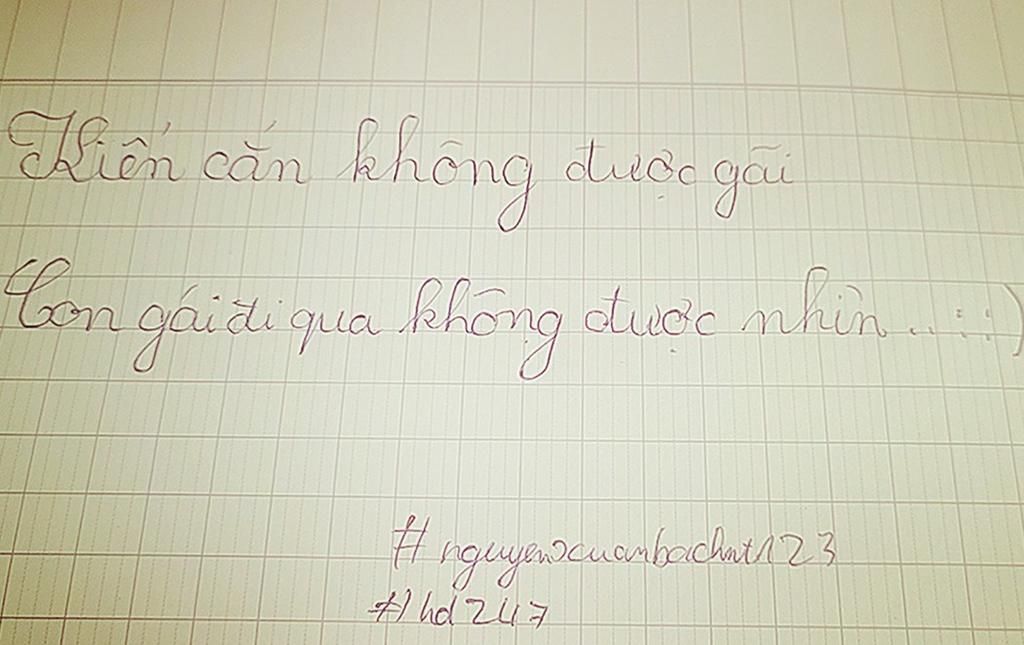 Kiến cắn không được gãi
Con gái đi qua không được nhìn..::)
#nguyenxuanbachnt123
#hd247